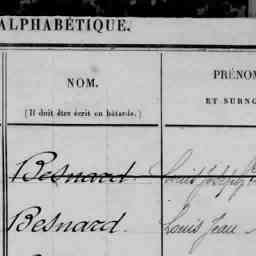 ALPHABÉTIQUE.
NOM. PRÉNOM
(Il doit être écrit en bâtarde.) ET SURNO
Besnard Louis Joseph
Besnard. Louis Jean